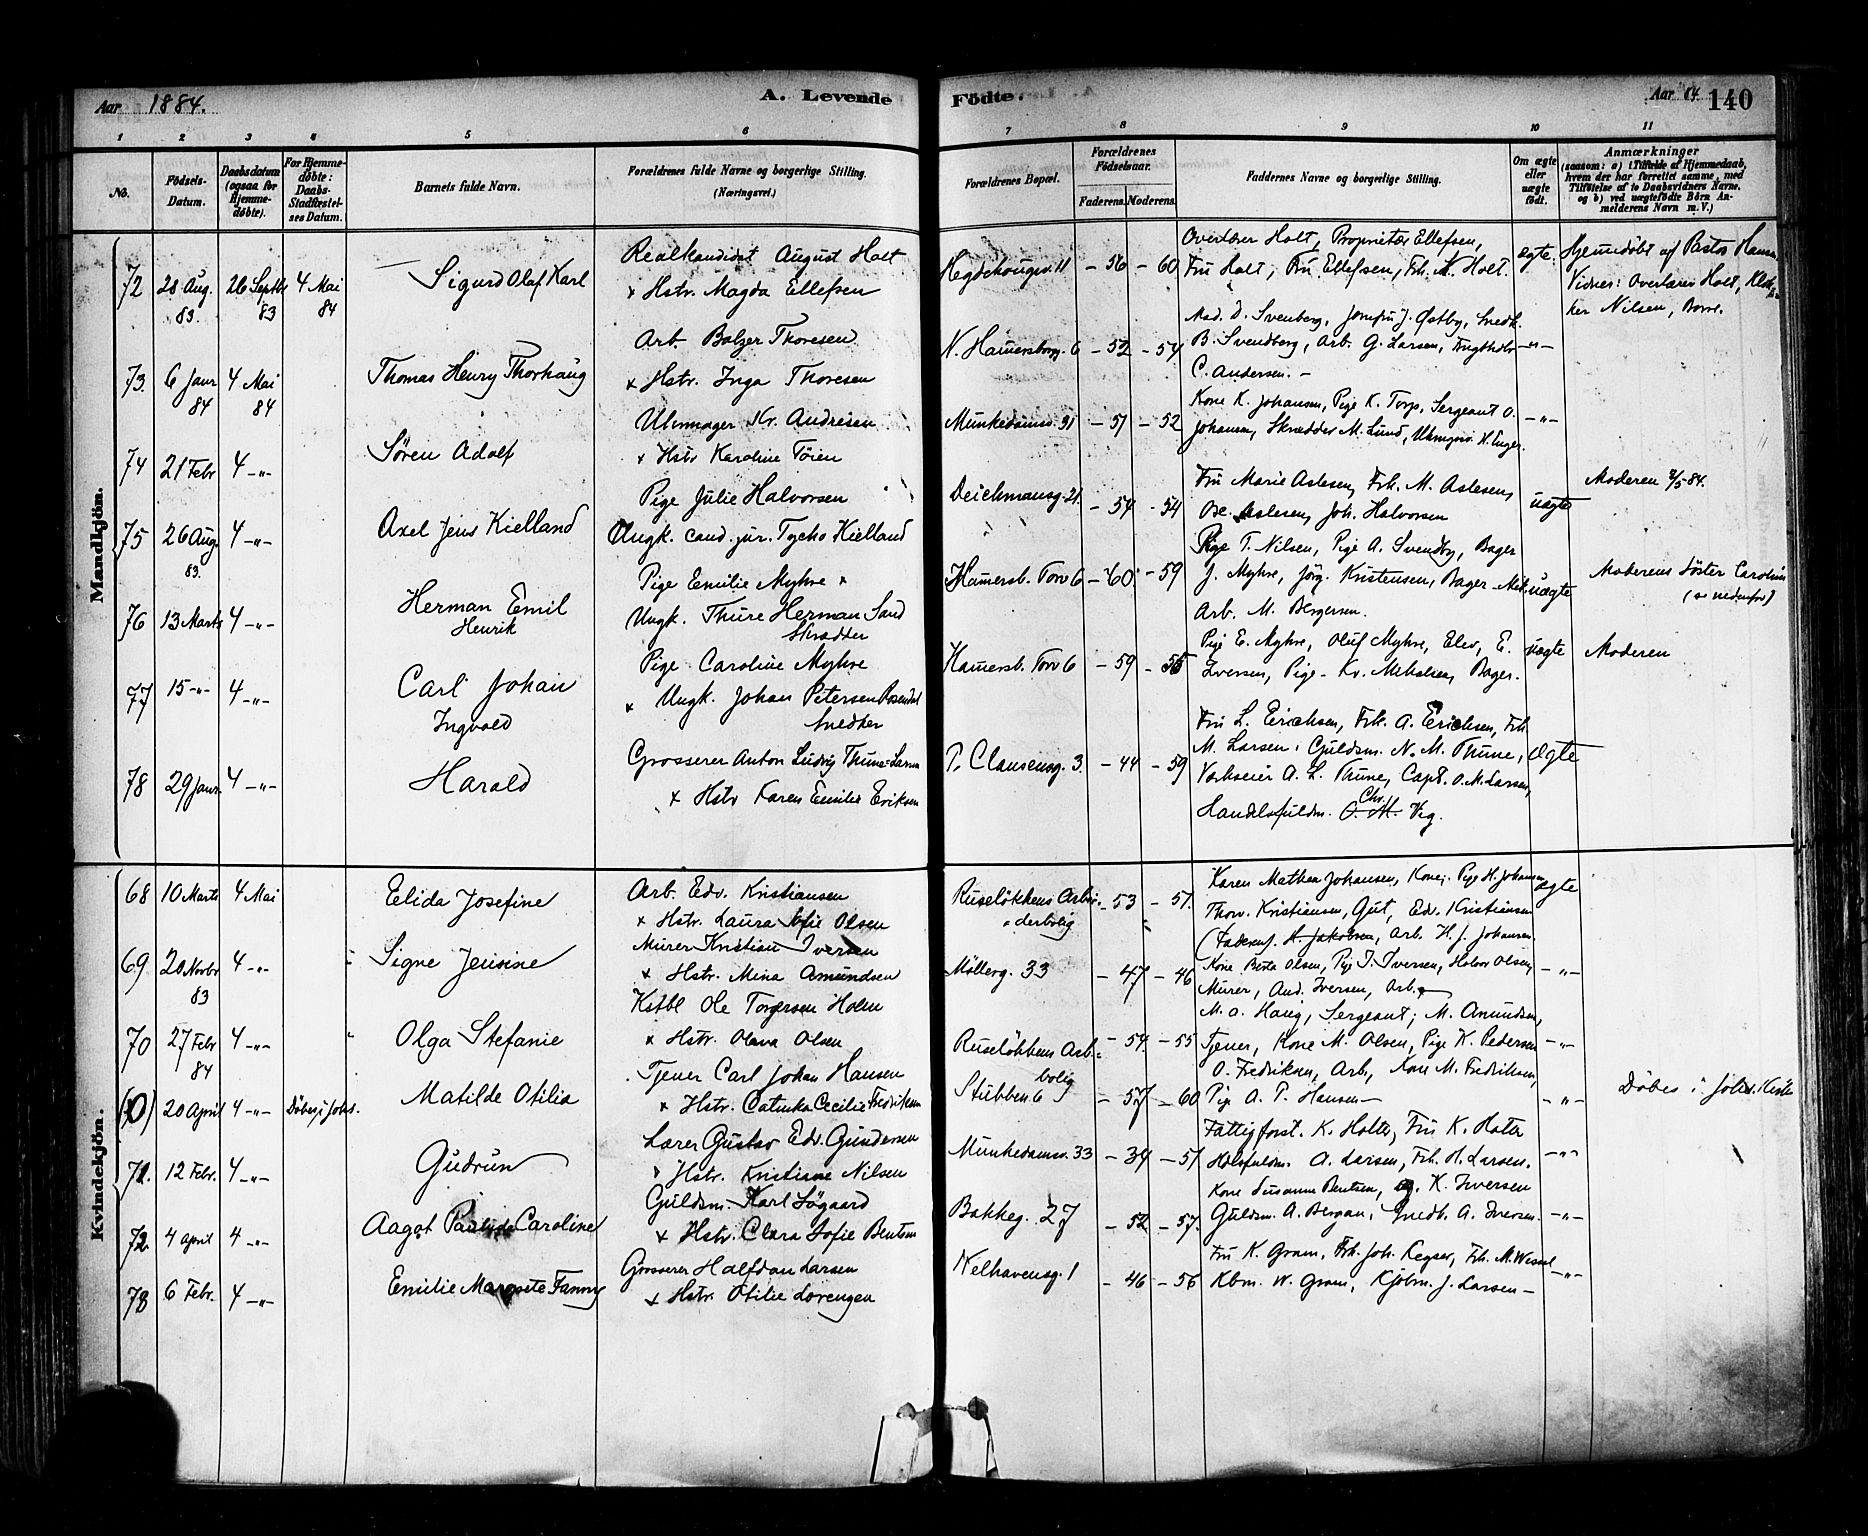 Aar 1884.
A. Levende
Födte.
Aar 84
140
1 2 3 4 5 6 7 8 9 10 11
No.
Födsels-Datum.
Daabsdatum (ogsaa for Hjemme-döbte).
For Hjemme-döbte: Daabs-Stadfæstel-ses Datum.
Barnets fulde Navn.
Forældrenes fulde Navne og borgerlige Stilling. (Næringsvei.)
Forældrenes Bopæl.
Forældrenes Födselsaar.
Faderens. Moderens.
Faddernes Navne og borgerlige Stilling.
Om ægte eller uægte födt.
Anmærkninger
(saasom: a) i Tilfælde af Hjemmedaab, hvem der har forrettet samme, med Tilföielse af to Daabsvidners Navne. og b) ved uægtefödte Börn An-melderens Navn m. V.)
Mandkjön.
72 28 Aug. 83. 26 Septbr 83 4 Mai 84 Sigurd Olaf Karl
Realkandidat August Holt
x Hstr. Magda Ellefsen
Hegdehougsv. 11 - 56 - 60
Overlærer Holt, Proprietær Ellefsen,
Fru Holt, Fru Ellefsen, Frk. N. Holt.
ægte.
Hjemmedøbt af Pastor Hansen
Vidner: Overlærer Holt, Klok-
ker Nilsen, Borre.
73. 6 Janr 84 4 Mai 84 Thomas Henry Thorhaug
Arb. Balzer Thoresen
x Hstr. Inga Thoresen
N. Hamersborg. 6 - 52 - 54
Mad. D. Svenberg, Jomfru J. Østby, Snedk.
B. Svendberg, Arb. G. Larsen,
C. Andersen. -
-"-
74 21 Febr 4 -"- Søren Adolf
Uhrmager Kr. Andresen
x Hstr Karoline Töien
Munkedamsv. 31 - 51 - 52
Kone K. Johansen, Pige K. Torp, Sergeant O.
Johansen, Skrædder M. Lund, H. Unger.
-"-
75 26 Aug. 83. 4 -"- Axel Jens Kielland
Pige Julie Halvorsen
Ungk. cand. jur. Tycho Kielland
Deichmansg. 21. - 54 - 54
Fru Marie Aslesen, Frk. M. Aslesen,
Aslesen, Joh. Halvorsen
uægte
Moderen 2/5 84.
76 13 Marts 4 -"- Herman Emil
Henrik
Pige Emilie Myhre x
Ungk. Thure Herman Sand
Skrædder
Hamersb. Torv 6 - 60 - 59
Pige T. Nilsen, Pige A. Svendby, Bager
J. Myhre, Jörg. Kristensen, Bager
Arb. M. Bergersen.
uægte
Moderens Söster Caroline
(se nedenfor)
77 15 -"- 4 -"- Carl Johan
Ingvald
Pige Caroline Myhre
x Ungk. Johan Petersen Rosendal
Snedker
Hamersb. Torv 6 - 59 - 55
Pige E. Myhre, Oluf Myhre, Elev, E.
Iversen, Pige - Kr. Mikalsen, Bager.
uægte
Moderen
78 29 Janr. 4 -"- Harald
Grosserer Anton Ludvig Thune-Larsen
x Hstr Karen Emilie Eriksen
P. Clausensg. 3. - 44 - 59
Fru L. Erichsen, Frk. A. Erichsen, Frk
M. Larsen, Guldsm. N. M. Thune,
Værkseier A. L. Thune, Capt. O. M. Larsen,
Handelsfuldm. O. M. Chr. Vig.
Ægte
Kvindekjön.
68 10 Marts 4 Mai Elida Josefine
Arb. Edv. Kristiansen
x Hstr. Laura Sofie Olsen
Ruseløkkens Arbei-
derbolig - 53 - 57.
Karen Mathea Johansen, Kone, Pige H. Johansen
Thorv. Kristiansen, Gut, Edv. Kristiansen
(Faderen). H. Jakobsen, Arb. H. J. Johansen.
ægte
69 20 Novbr 83 4 -"- Signe Jensine
Murer Kristian Iversen
x Hstr. Mina Amundsen
Møllerg. 33 - 47 - 46
Kone Berta Olsen, Pige I. Iversen, Halvor Olsen,
Murer, And. Iversen, Arb.
-"-
70 27 Febr 84 4 -"- Olga Stefanie
Kstbl Ole Torgersen Holm
x Hstr. Olava Olsen
Ruseløkkens Arb.
bolig - 54. - 55
M. O. Haug, Sergeant; M. Amundsen,
Tjener, Kone M. Olsen, Pige K. Pedersen
-"-
(70) 20 April 4 -"- Døbes i Johs. Matilde Otilia
Tjener Carl Johan Hansen
x Hstr. Catinka Cecilie Fredriksen
Stubben 6 - 57 - 60
O. Fredriksen, Arb, Kone M. Fredriksen,
Pige A. P. Hansen -
-"-
Døbes i Johs. Kirke
71. 12 Febr. 4 -"- Gudrun
Lærer Gustav Edv. Gundersen
x Hstr. Kristiane Nilsen
Munkedamsv. 33 - 34 - 57
Fattigforst. K. Holter, Fru K. Holter
Hdlsfuldm. A. Larsen, Frk. H. Larsen.
-"-
72. 4 April 4 -"- Aagot Caroline
Guldsm. Karl Søgaard
x Hstr. Clara Sofie Bentsen
Bakkeg. 27 - 52 - 57.
Kone Susanne Bentsen, K. Iversen
Guldsm. A. Bergan, Snedk. A. Iversen.
-"-
78 6 Febr. 4 -"- Emilie Margrete Fanny
Grosserer Halfdan Larsen
x Hstr. Otilie Lorengen
Welhavensg. 1 - 46 - 56
Fru K. Gram, Frk. Joh. Keyser, Frk. M. Wessel
Kbm. W. Gram, Kjøbm. J. Larsen -
-"-